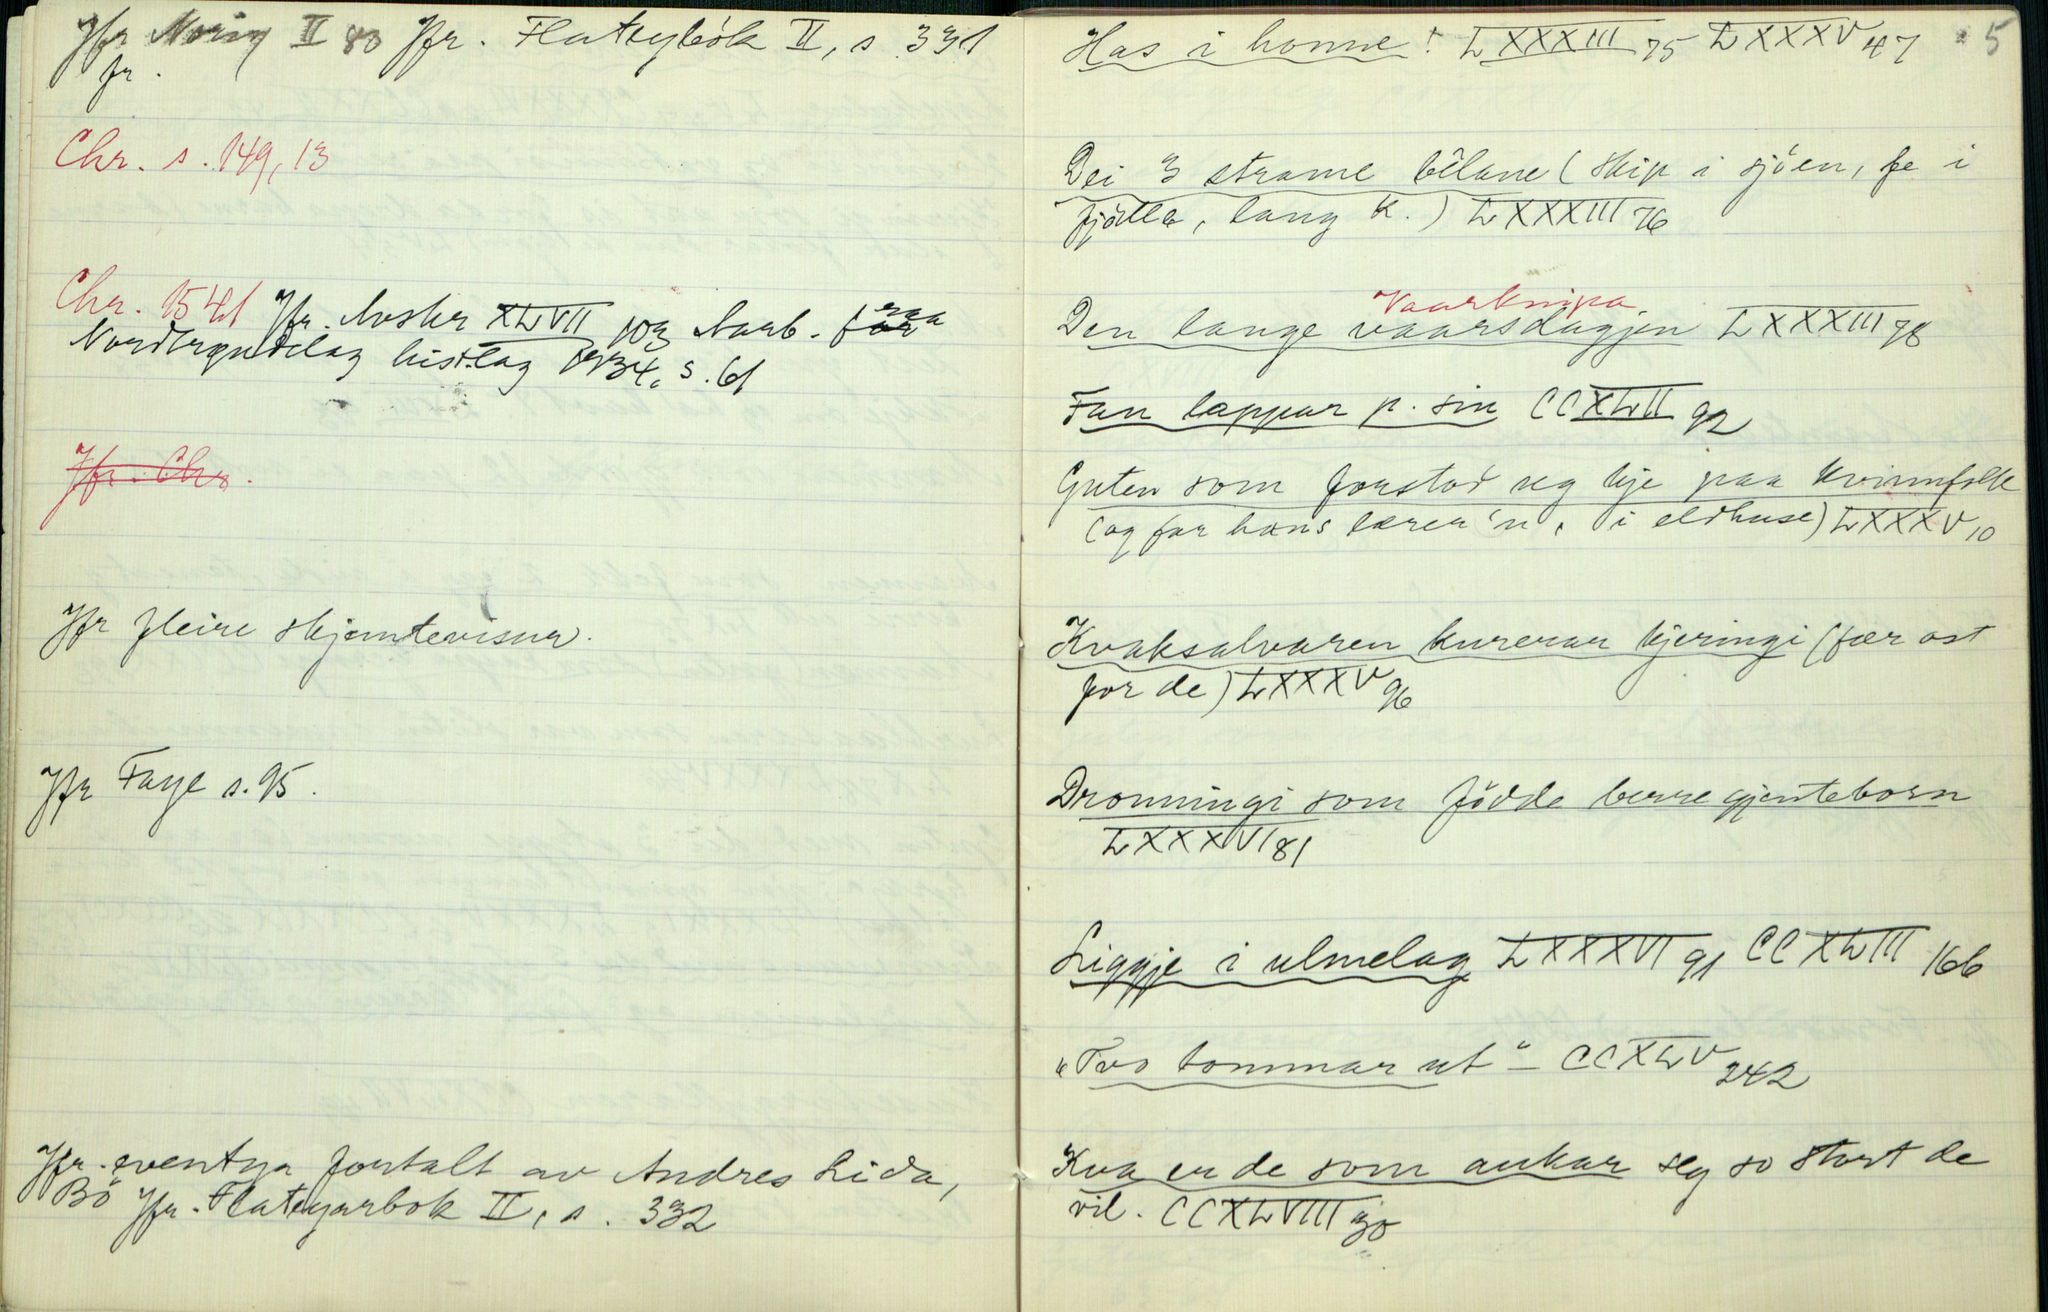 Jfr Norig II 80 Jfr. Flateybók II, s. 331
fr.
Chr. s. 149, 13
Chr. 1541 Jfr. Avskr XLVII 103 Aarb. fraa
Nordbrandelag hist.lag 1934, s. 61
Jfr. Chr.
Jfr fleire skjemtevisur.
Jfr Faye s. 95.
Jfr. eventyr fortalt av Andres Lida,
Bö Jfr. Flateyarbok II, s. 332
5
Has i honne! LXXXIII 75 LXXXV 47
Dei 3 strame bêlane (skip i sjöen, fe i
fjölle, lang k.) LXXXIII 76
Vaarknipa
Den lange vaarsdagjen LXXXIII 78
Fan lappar p. sin CCXLII 92
Guten som forstod seg kje paa kvinnfolk
(og far hans lærer 'n, i eldhuse) LXXXV 10
Kvaksalvaren kurerar kjeringi (fær ost
for de) LXXXV 96
Dronningi som födde berre gjenteborn
LXXXVI 81
Liggje i ulmelag LXXXVI 91 CCXLIII 166
"Tvo tommar ut" – CCXLV 242
Kva er de som aukar seg so stort de
vil. CCXLVIII 30